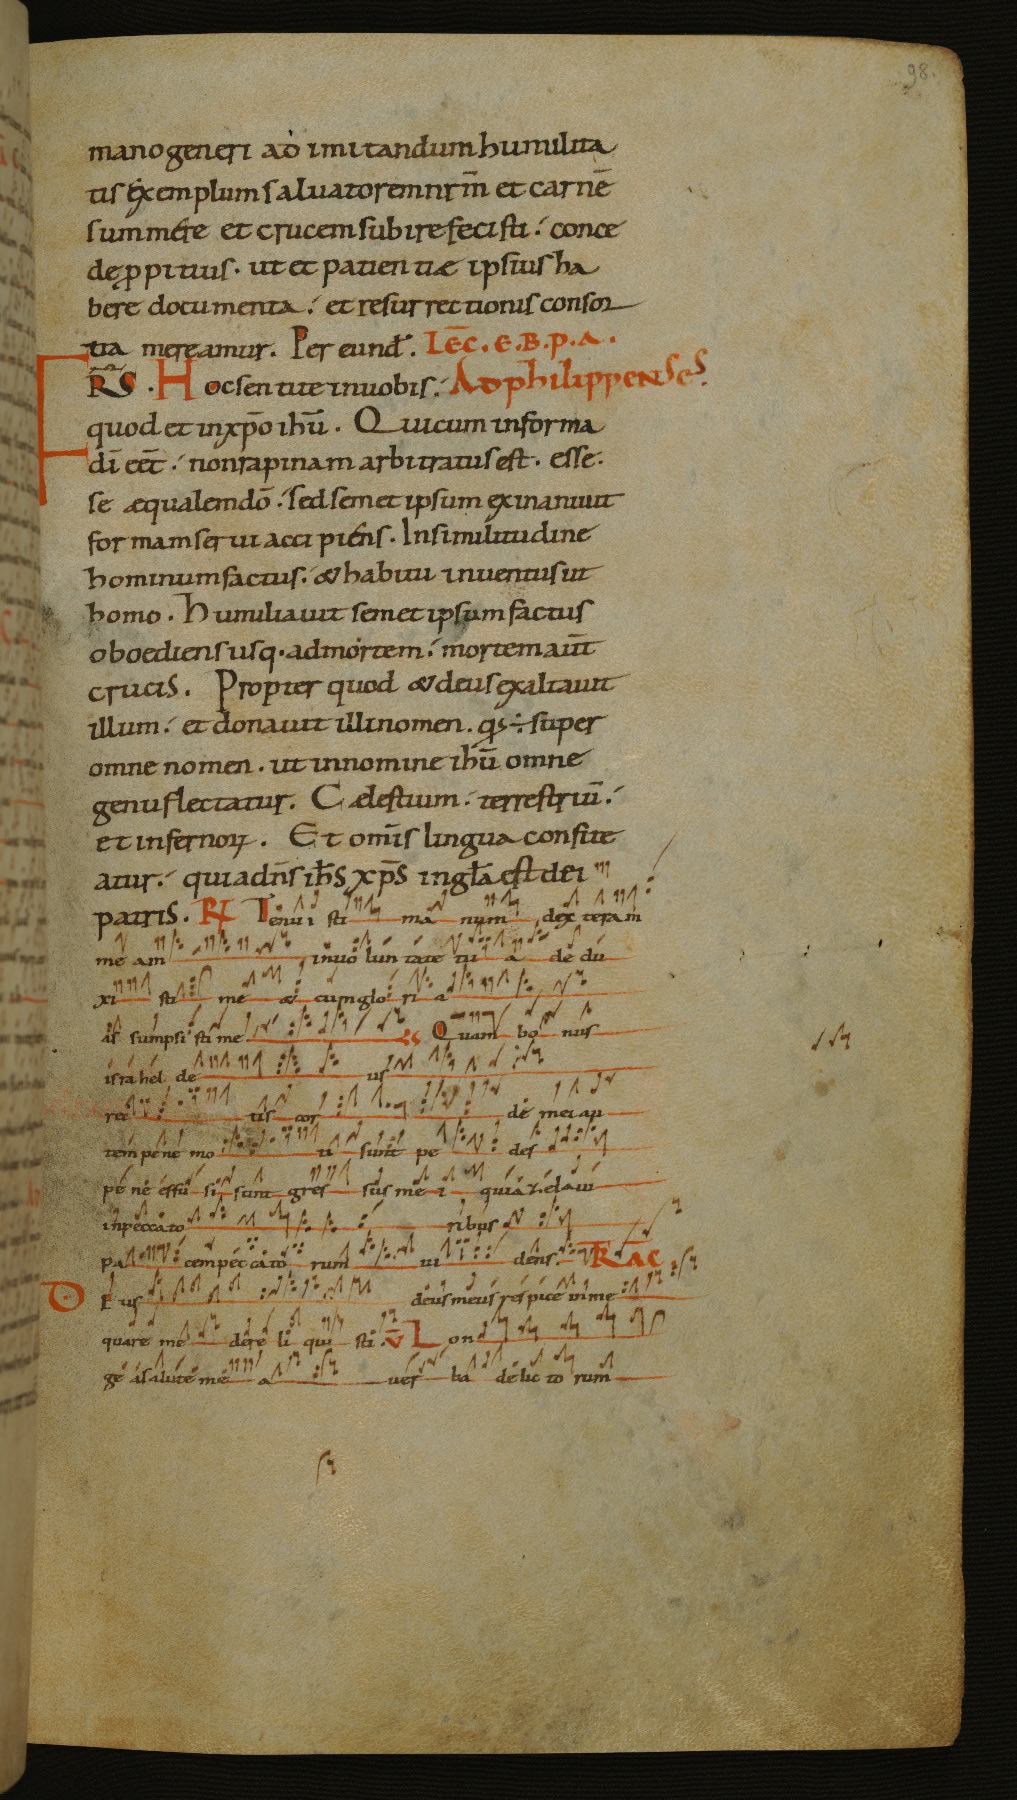 98.
mano generi ad imitandum humilita
tis exemplum saluatorem nr̄m et carnē
summere et crucem subire fecisti. conce
de ꝓpitius. ut et patientiæ ipsius ha
bere documenta. et resurrectionis consor
tia mereamur. Per eund. LEC̄. E. B. P. A.
FRS. Hoc sentite in uobis. AD philippenses.
quod et in xp̄o ihū. Qui cum in forma
dī eēt. non rapinam arbitratus est. esse.
se æqualem dō. sed semet ipsum exinaniuit
formam serui accipiens. In similitudine
hominum factus. & habitu inuentus ut
homo. Humiliauit semet ipsum factus
oboediens usq. ad mortem. mortem aūt
crucis. Propter quod & deus exaltauit
illum. et donauit illi nomen. qđ ÷ super
omne nomen. ut in nomine ihū omne
genu flectatur. Cælestium. terrestriū.
et infernoꝝ. Et om̄is lingua confite
atur. quia dn̄s ih̄s xp̄s in gl̄a est dei
patris. R̄ Tenui sti ma num dex teram
me am in uo lun tate tu a de du
xi sti me & cum glo ri a
as sumpsi sti me Quam bo nus
isra hel de us
rec tis cor de mei au
tem pene mo ti sunt pe des
pe ne effu si sunt gres sus me i quia zelaui
in peccato ribus
pa cem pec cato rum ui dens. TRAC
DEus deus meus respice in me
quare me dere li qui sti. V̄ Lon
ge a salute me a uer ba de lic to rum